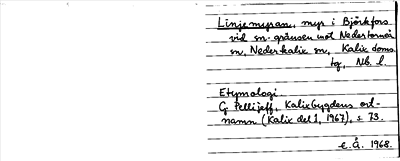 Linjemyran, myr i Björkfors
vid sn-gränsen mot Nedertorneå
sn, Nederkalix sn, Kalix doms.
tg, Nb. l.
Etymologi.
G Pellijeff, Kalixbygdens ort-
namn (Kalix del 1, 1967), s 73.
E. Å. 1968.